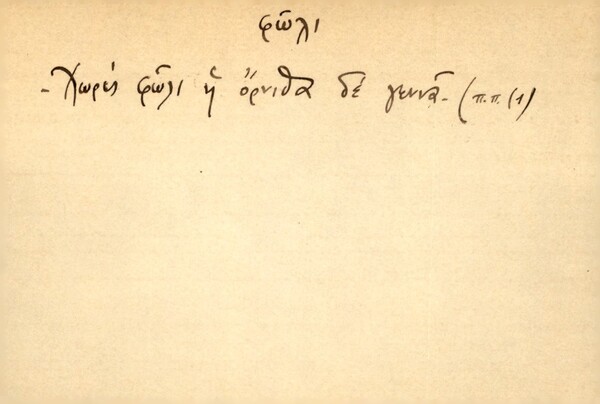 φῶλι
- Χωρίς φῶλι ἡ ὄρνιθα δέ γεννᾶ. (π.π. (1)